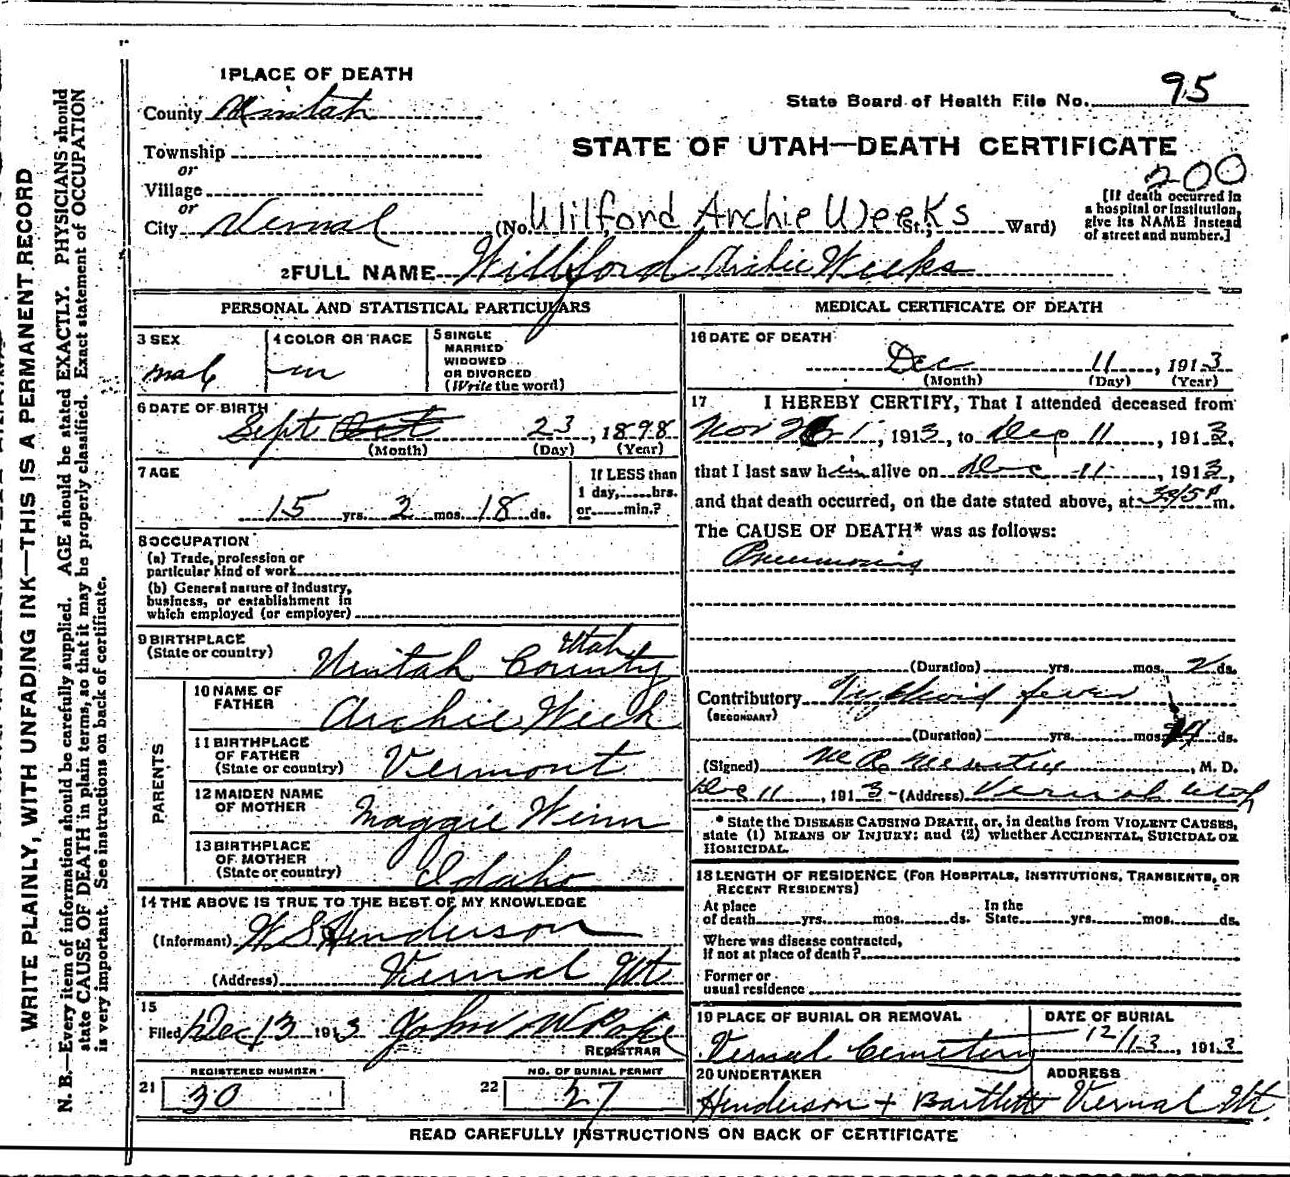 1 PLACE OF DEATH
County Uintah
State Board of Health File No. 95
Township
or
Village
or
City Vernal
STATE OF UTAH—DEATH CERTIFICATE
200
(No. Wilford Archie Weeks St.; Ward)
[If death occurred in
a hospital or institution,
give its NAME instead
of street and number.]
2 FULL NAME Willford Archie Weeks
PERSONAL AND STATISTICAL PARTICULARS
3 SEX
male
4 COLOR OR RACE
w
5 SINGLE
MARRIED
WIDOWED
OR DIVORCED
(Write the word)
6 DATE OF BIRTH
Sept Oct 23, 1898
(Month) (Day) (Year)
7 AGE
15 yrs. 2 mos. 18 ds.
If LESS than
1 day,.....hrs.
or.....min.?
8 OCCUPATION
(a) Trade, profession or
particular kind of work
(b) General nature of industry,
business, or establishment in
which employed (or employer)
9 BIRTHPLACE
(State or country)
Uintah County Utah
PARENTS
10 NAME OF
FATHER
Archie Week
11 BIRTHPLACE
OF FATHER
(State or country)
Vermont
12 MAIDEN NAME
OF MOTHER
Maggie Winn
13 BIRTHPLACE
OF MOTHER
(State or country)
Idaho
14 THE ABOVE IS TRUE TO THE BEST OF MY KNOWLEDGE
(Informant) W S Henderson
(Address) Vernal Ut.
15
Filed Dec 13 1913 John W Pope
REGISTRAR
REGISTERED NUMBER
21 30
NO. OF BURIAL PERMIT
22 27
MEDICAL CERTIFICATE OF DEATH
16 DATE OF DEATH
Dec 11, 1913
(Month) (Day) (Year)
17 I HEREBY CERTIFY, That I attended deceased from
Nov 1, 1913, to Dec 11, 1913,
that I last saw him alive on Dec 11, 1913,
and that death occurred, on the date stated above, at m.
The CAUSE OF DEATH* was as follows:
Pneumonia
(Duration) yrs. mos. 2 ds.
Contributory Typhoid fever
(SECONDARY)
(Duration) yrs. mos. ds.
(Signed) M.D.
Dec 11, 1913 (Address) Vernal Utah
* State the DISEASE CAUSING DEATH, or, in deaths from VIOLENT CAUSES,
state (1) MEANS OF INJURY; and (2) whether ACCIDENTAL, SUICIDAL OR
HOMICIDAL.
18 LENGTH OF RESIDENCE (FOR HOSPITALS, INSTITUTIONS, TRANSIENTS, OR
RECENT RESIDENTS)
At place In the
of death yrs. mos. ds. State yrs. mos. ds.
Where was disease contracted,
if not at place of death?
Former or
usual residence
19 PLACE OF BURIAL OR REMOVAL
Vernal Cemetery
DATE OF BURIAL
12/13, 1913
20 UNDERTAKER
Henderson + Bartlett
ADDRESS
Vernal Ut.
READ CAREFULLY INSTRUCTIONS ON BACK OF CERTIFICATE
WRITE PLAINLY, WITH UNFADING INK—THIS IS A PERMANENT RECORD
N. B.—Every item of information should be carefully supplied. AGE should be stated EXACTLY. PHYSICIANS should
state CAUSE OF DEATH in plain terms, so that it may be properly classified. Exact statement of OCCUPATION
is very important. See instructions on back of certificate.